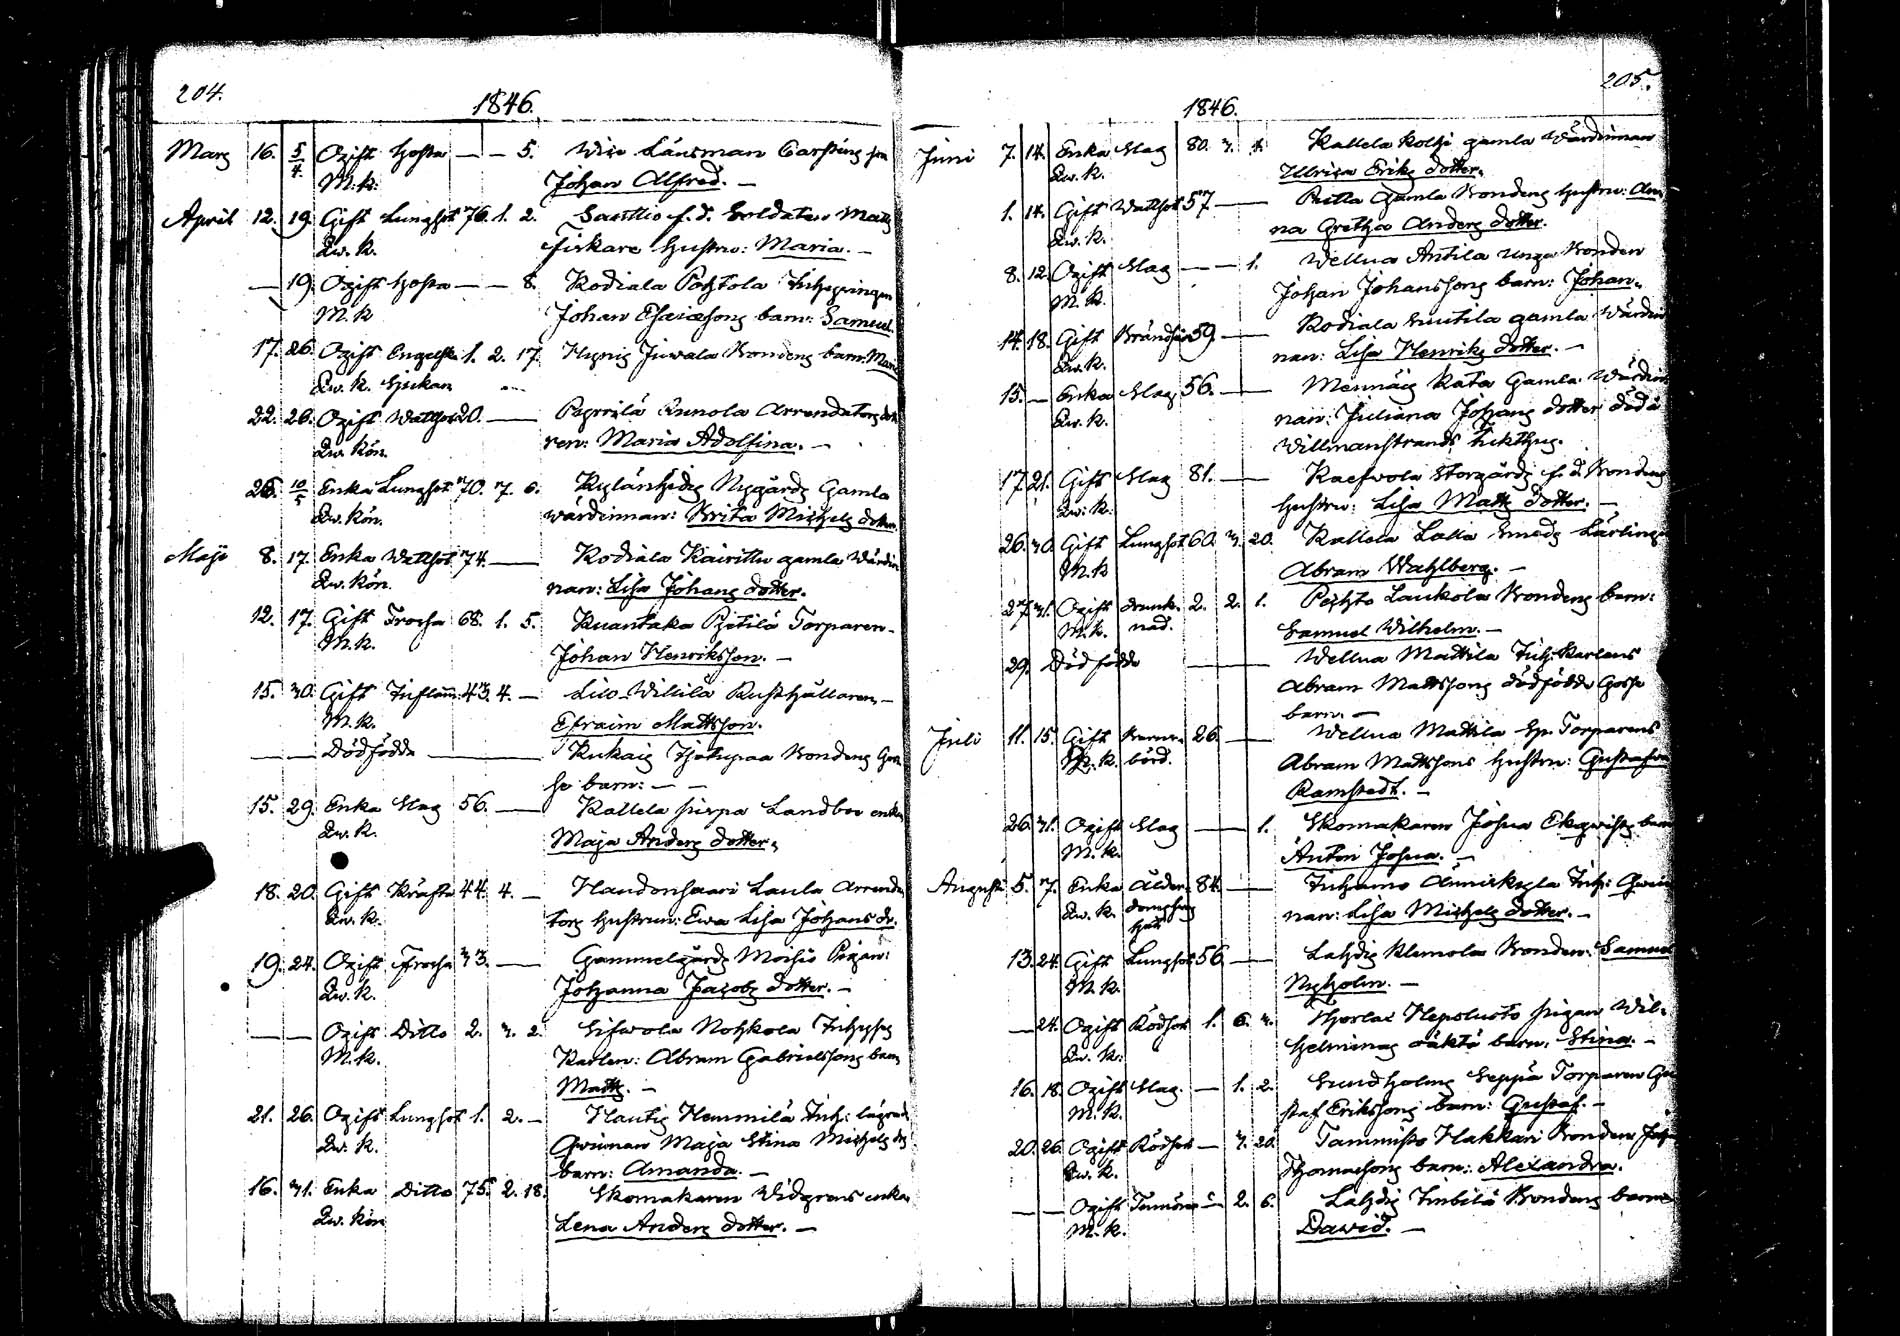 204.
1846.
Mars 16. 5/4. Ogift Hosta — — 5. Wiso Länsman Carstens son
M. k. Johan Alfred. —
April 12. 19. Gift Lungsot 76. 1. 2. Santtio f. d. Soldaten Matts
Qv. k. Fiskare hustru: Maria. —
— 19. Ogift Hosta — — 8. Kodiala Inhysingen
M. k Johan Esaiæsons barn: Samuel.
17. 26. Ogift Engelska 1. 2. 17. Juvala Bondens barn: Maria
Qv. k. Sjukan
22. 26. Ogift Wattsot 20. — Arrendators dott
Qv. kön. ren: Maria Adolfina. —
26. 10/5 Enka Lungsot 70. 7. 6. Nygårds Gamla
Qv. kön. wärdinnan: Brita Michels dotter.
Maji 8. 17. Enka Wattsot 74. — Kodiala Kairittu gamla Wärdin
Qv. kön. nan: Lisa Johans dotter.
12. 17. Gift Frossa 68. 1. 5. Kuantaka Torparen
M. k. Johan Henriksson. —
15. 30. Gift Inflam: 43. 4. — Willilä Rusthållaren
M. k. Efraim Mattsson.
— — Dödfödde — Bondens Gos
se barn: — —
15. 29. Enka Slag 56. — Kallela Landbo enka
Qv. k. Maja Anders dotter.
18. 20. Gift Kräfta 44. 4. — Haudonsaari Laula Arrenda
Qv. k. tors hustrun: Ewa Lisa Johans dr.
19. 24. Ogift Frossa 33. — Gammelgårds Moisio Pigan:
Qv. k. Johanna Jacobs dotter. —
— — Ogift Ditto 2. 3. 2. Nohkola Inhyses
M. k. Karlen: Abram Gabrielssons barn
Matts. —
21. 26. Ogift Lungsot 1. 2. — Hautis Hemmilä Inh: lägrade
Qv. k. Qwinnan Maja Stina Michels drs
barn: Amanda. —
16. 31. Enka Ditto 75. 2. 18. Skomakaren Widgrens enka
Qv. kön Lena Anders dotter. —
205.
1846.
Juni 7. 14. Enka Slag 80. 3. Kallela Kolki gamla Wärdinnan
Qv. k. Ulrica Eriks dotter.
1. 14. Gift Wattsot 57 — Gamla Bondens hustru: An
Qv. k. na Gretha Anders dotter.
8. 12. Ogift Slag — — 1. Wellua Antila unga Bonden
M. k. Johan Johanssons barn: Johan.
14. 18. Gift 59. — Kodiala gamla Wärdin
Qv. k. nan: Lisa Henriks dotter. —
15. — Enka Slag 56. — Mennäis Kata Gamla Wärdin
Qv. k. nan: Juliana Johans dotter död å
Willmanstrands tukthus.
17. 21. Gift Slag 81. — Storgårds f. d. Bondens
Qv. k. hustru: Lisa Matts dotter. —
26. 30. Gift Lungsot 60. 3. 20. Kallela Lalla Smeds Lärling
M. k Abram Wahlberg. —
27. 31. Ogift drunk- 2. 2. 1. Laukola Bondens barn:
M. k. nad. Samuel Wilhelm. —
29. Död födde — Wellua Mattila Inh: Karlens
Abram Mattssons dödfödde Gosse
barn. —
Juli 11. 15. Gift Barns- 26. — Wellua Mattila Torparens
Qv. k. börd. Abram Mattssons hustru: Gustafva
Ramstedt. —
26. 31. Ogift Slag — 1. Skomakaren Josua Ekqwists barn
M. k. Anton Josua. —
Augusti 5. 7. Enka Ålder- 84. — Inh: Qwin
Qv. k. doms
nan: Lisa Michels dotter. —
13. 24. Gift Lungsot 56. — Lahdis Klemola Bonden: Samuel
M. k. Nyholm. —
— 24. Ogift Rödsot 1. 6. 3. pigan Wil-
Qv. k. helminas oäkta barn: Stina. —
16. 18. Ogift Slag. — 1. 2. Sundholms Seppä Torparen Gu
M. k. staf Erikssons barn: Gustaf. —
20. 26. Ogift Rödsot — 3. 20. Tammisto Hakkari Bonden Joh
Qv. k. Thomassons barn: Alexandra.
— — Ogift — 2. 6. Lahdis Bondens barn
M. k. David. —